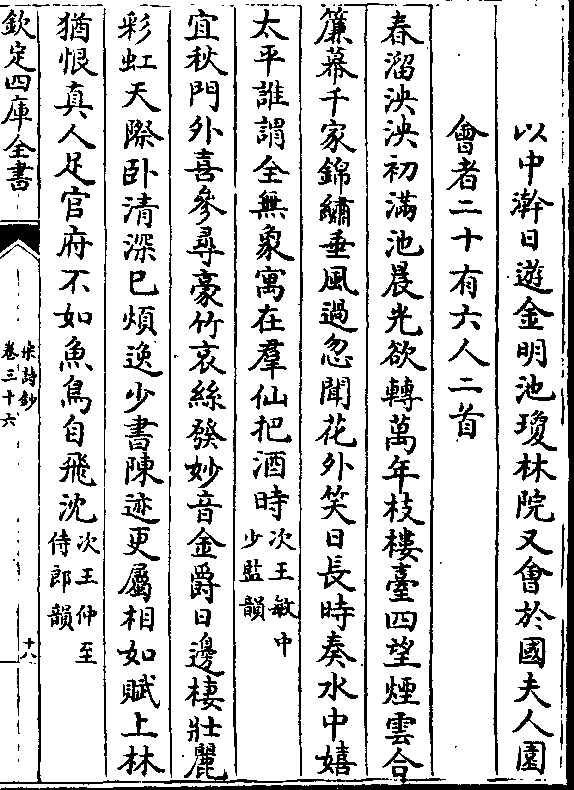 以中澣日遊金明池瓊林院又會於國夫人園
會者二十有六人二首
春溜泱泱初滿池晨光欲轉萬年枝樓臺四望煙雲合
簾幕千家錦繡垂風過忽聞花外笑日長時奏水中嬉
太平誰謂全無象寓在羣仙把酒時次王敏中
少監韻
宜秋門外喜參尋豪竹哀絲發妙音金爵日邊棲壯麗
彩虹天際卧清深已煩逸少書陳迹更屬相如賦上林
猶恨真人足官府不如魚鳥自飛沈次王仲至
侍郎韻
欽定四庫全書
宋詩鈔
卷三十六
十八